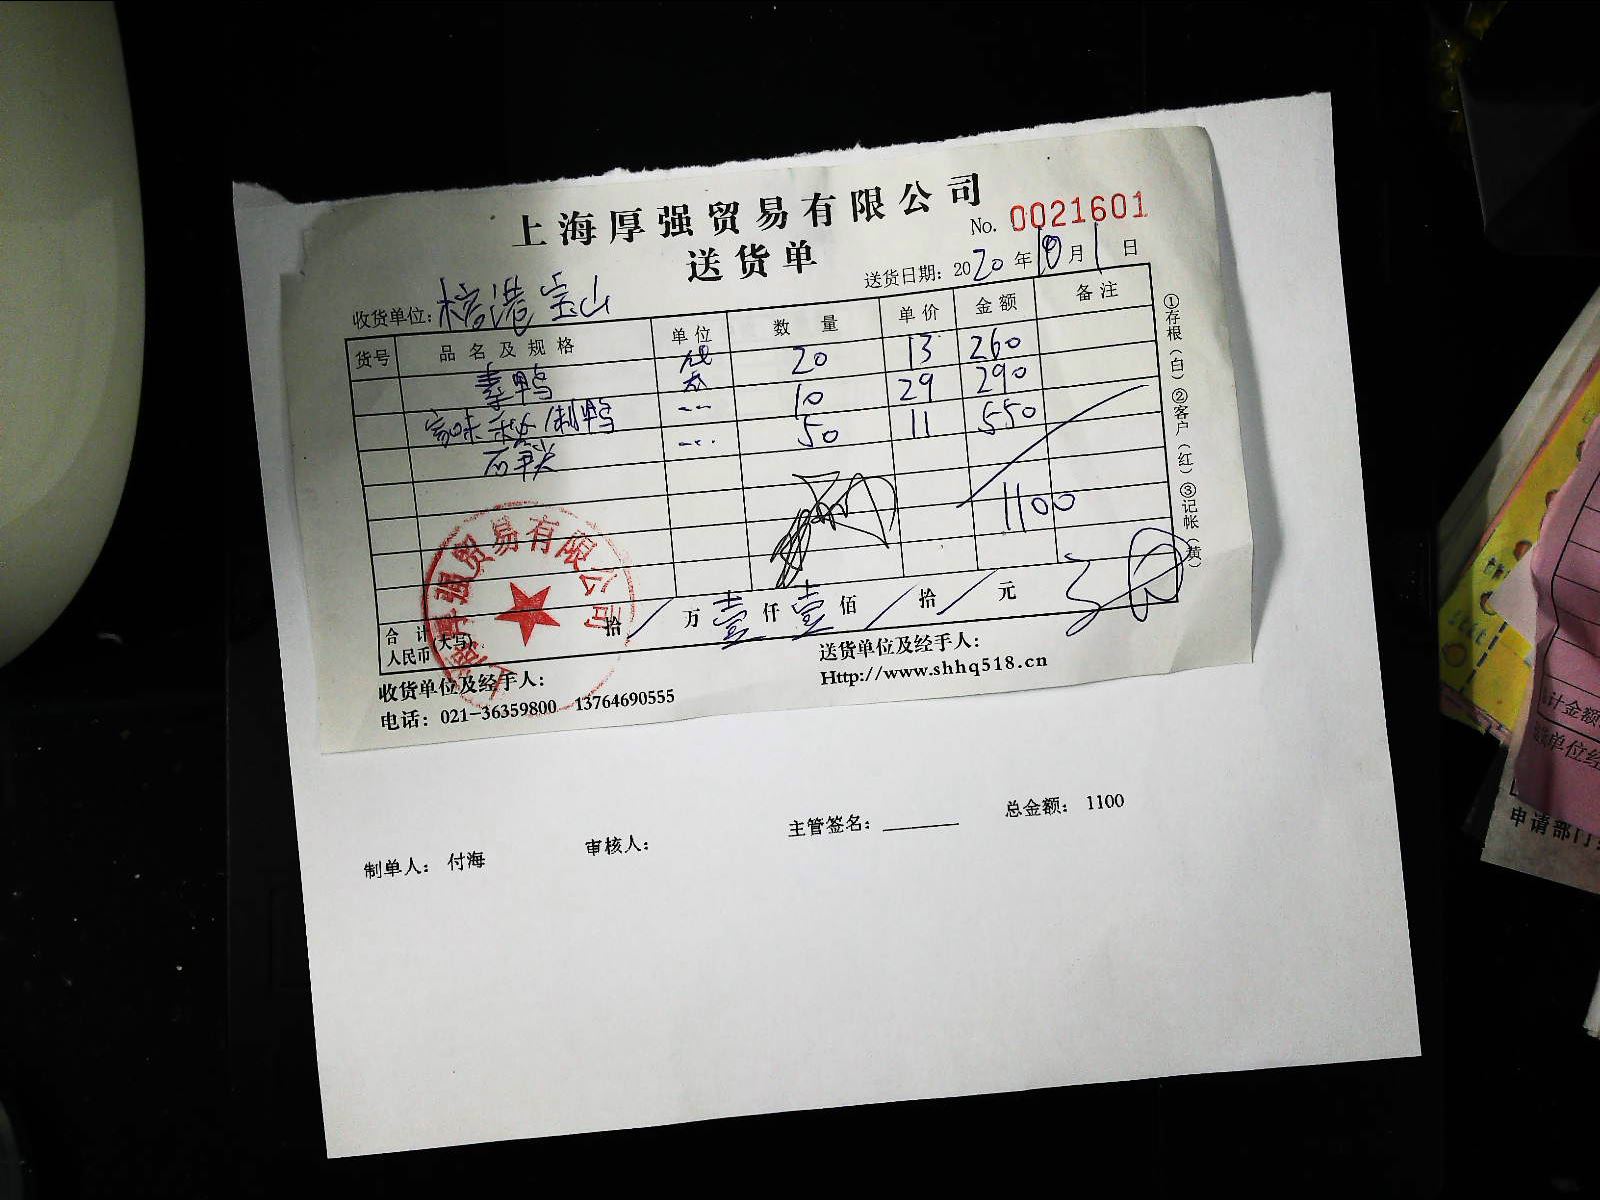 上海厚强贸易有限公司
No. 0021601
送货单
送货日期：2020年10月1日
收货单位：港宝山
货号 品名及规格 单位 数量 单价 金额 备注
素鸭 袋 20 13 260
家味秘制鸭 -- 10 29 290
石笋尖 -- 50 11 550
1100
合计人民币(大写) 拾/万壹仟壹佰/拾/元
上海厚强贸易有限公司
收货单位及经手人：
送货单位及经手人：
电话：021-36359800 13764690555
Http://www.shhq518.cn
①存根（白）②客户（红）③记帐（黄）
制单人：付海
审核人：
主管签名：
总金额：1100
计金额
单位经
申请部门：